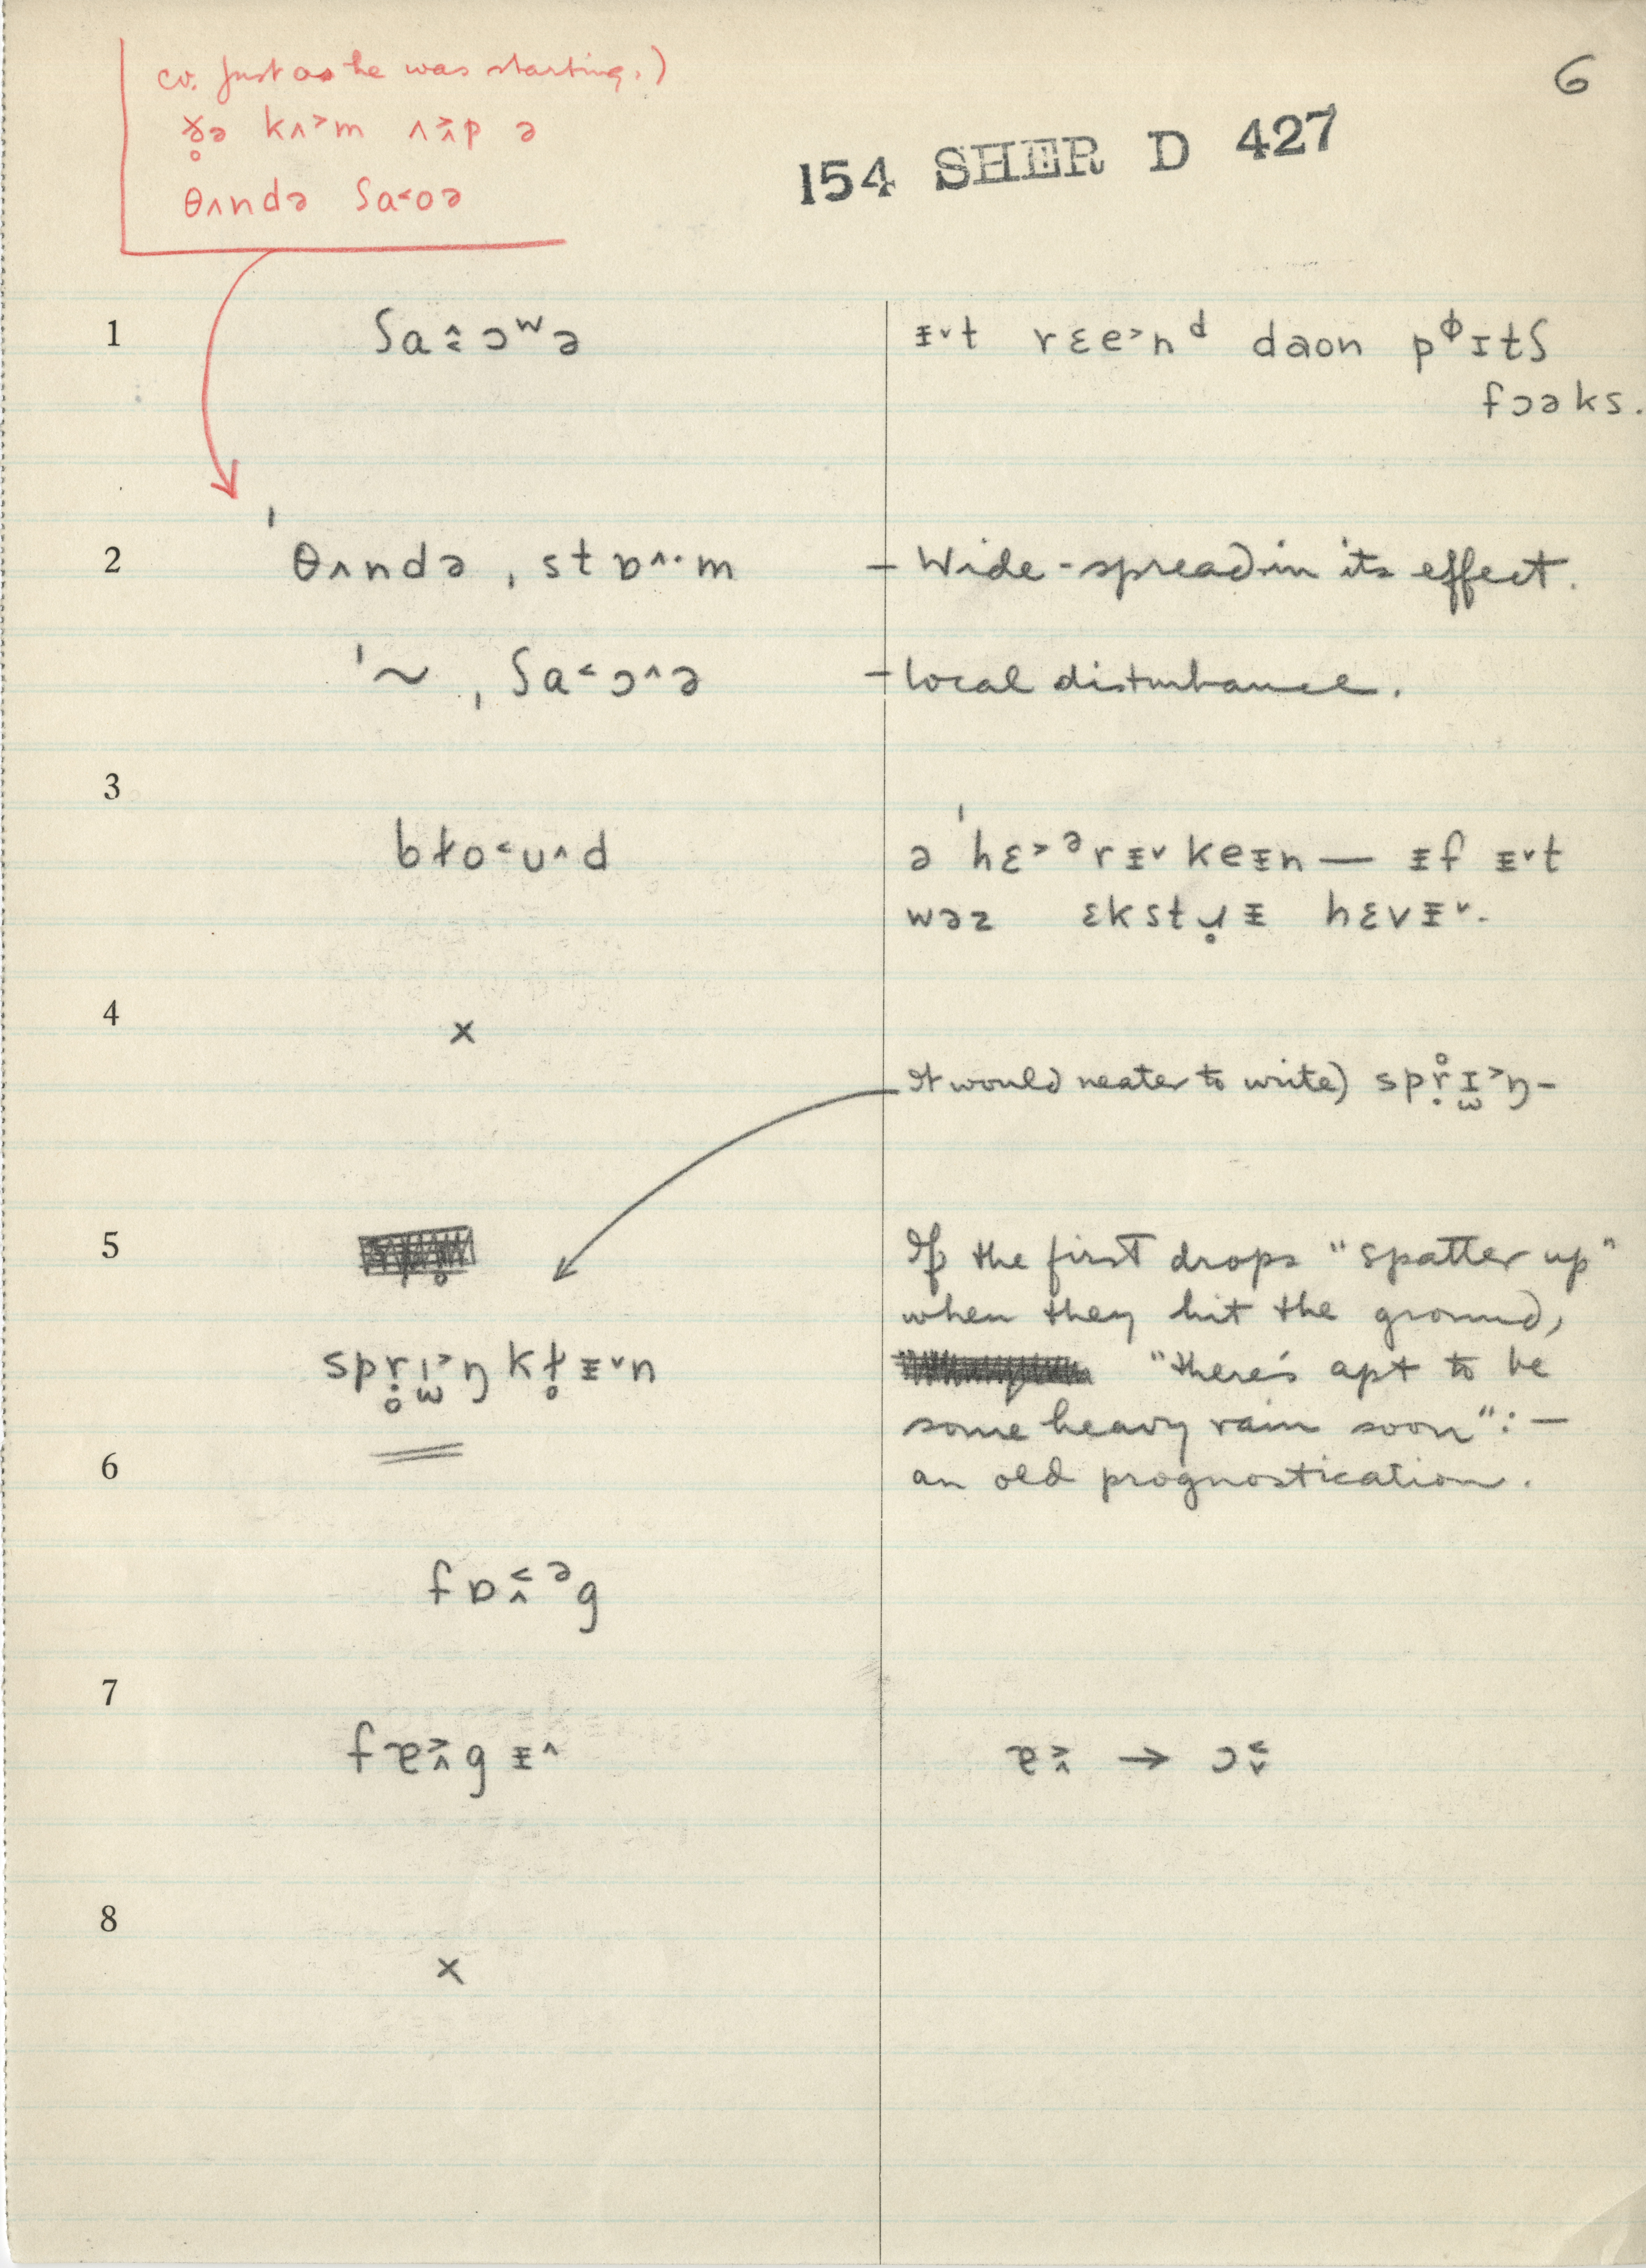 cv. Just as he was starting.)
ɣ̥ə kʌ˃m ʌ˃̭p ə
θʌndə ʃa˂oə
6
154 SHER D 427
1 ʃa˄̰ɔʷə ᵻ˅t rɛe˃nᵈ daon pᶲɪtʃ
fɔəks.
2 ˈθʌndə ˌstɒ˄·m – Wide-spread in its effect.
ˈ~ ˌʃa˂ɔ˄ə – local disturbance.
3
bɫo˂u˄d ə ˈhɛ˃ᵊrᵻ˅keᵻn — ᵻf ᵻ˅t
wəz ɛkstɹ̥ᵻ hɛvᵻ˅.
4 x
It would neater to write) spr̥ɪ˃ŋ-
5 If the first drops "spatter up"
when they hit the ground,
sprɪ˃ŋkɫ̥ᵻ˅n "there's apt to be
some heavy rain soon":—
6 an old prognostication.
fɒ˂̭ᵊg
7
fɐ˃̭gᵻ˄ ɐ˃̭ → ɔ˂̬
8
x